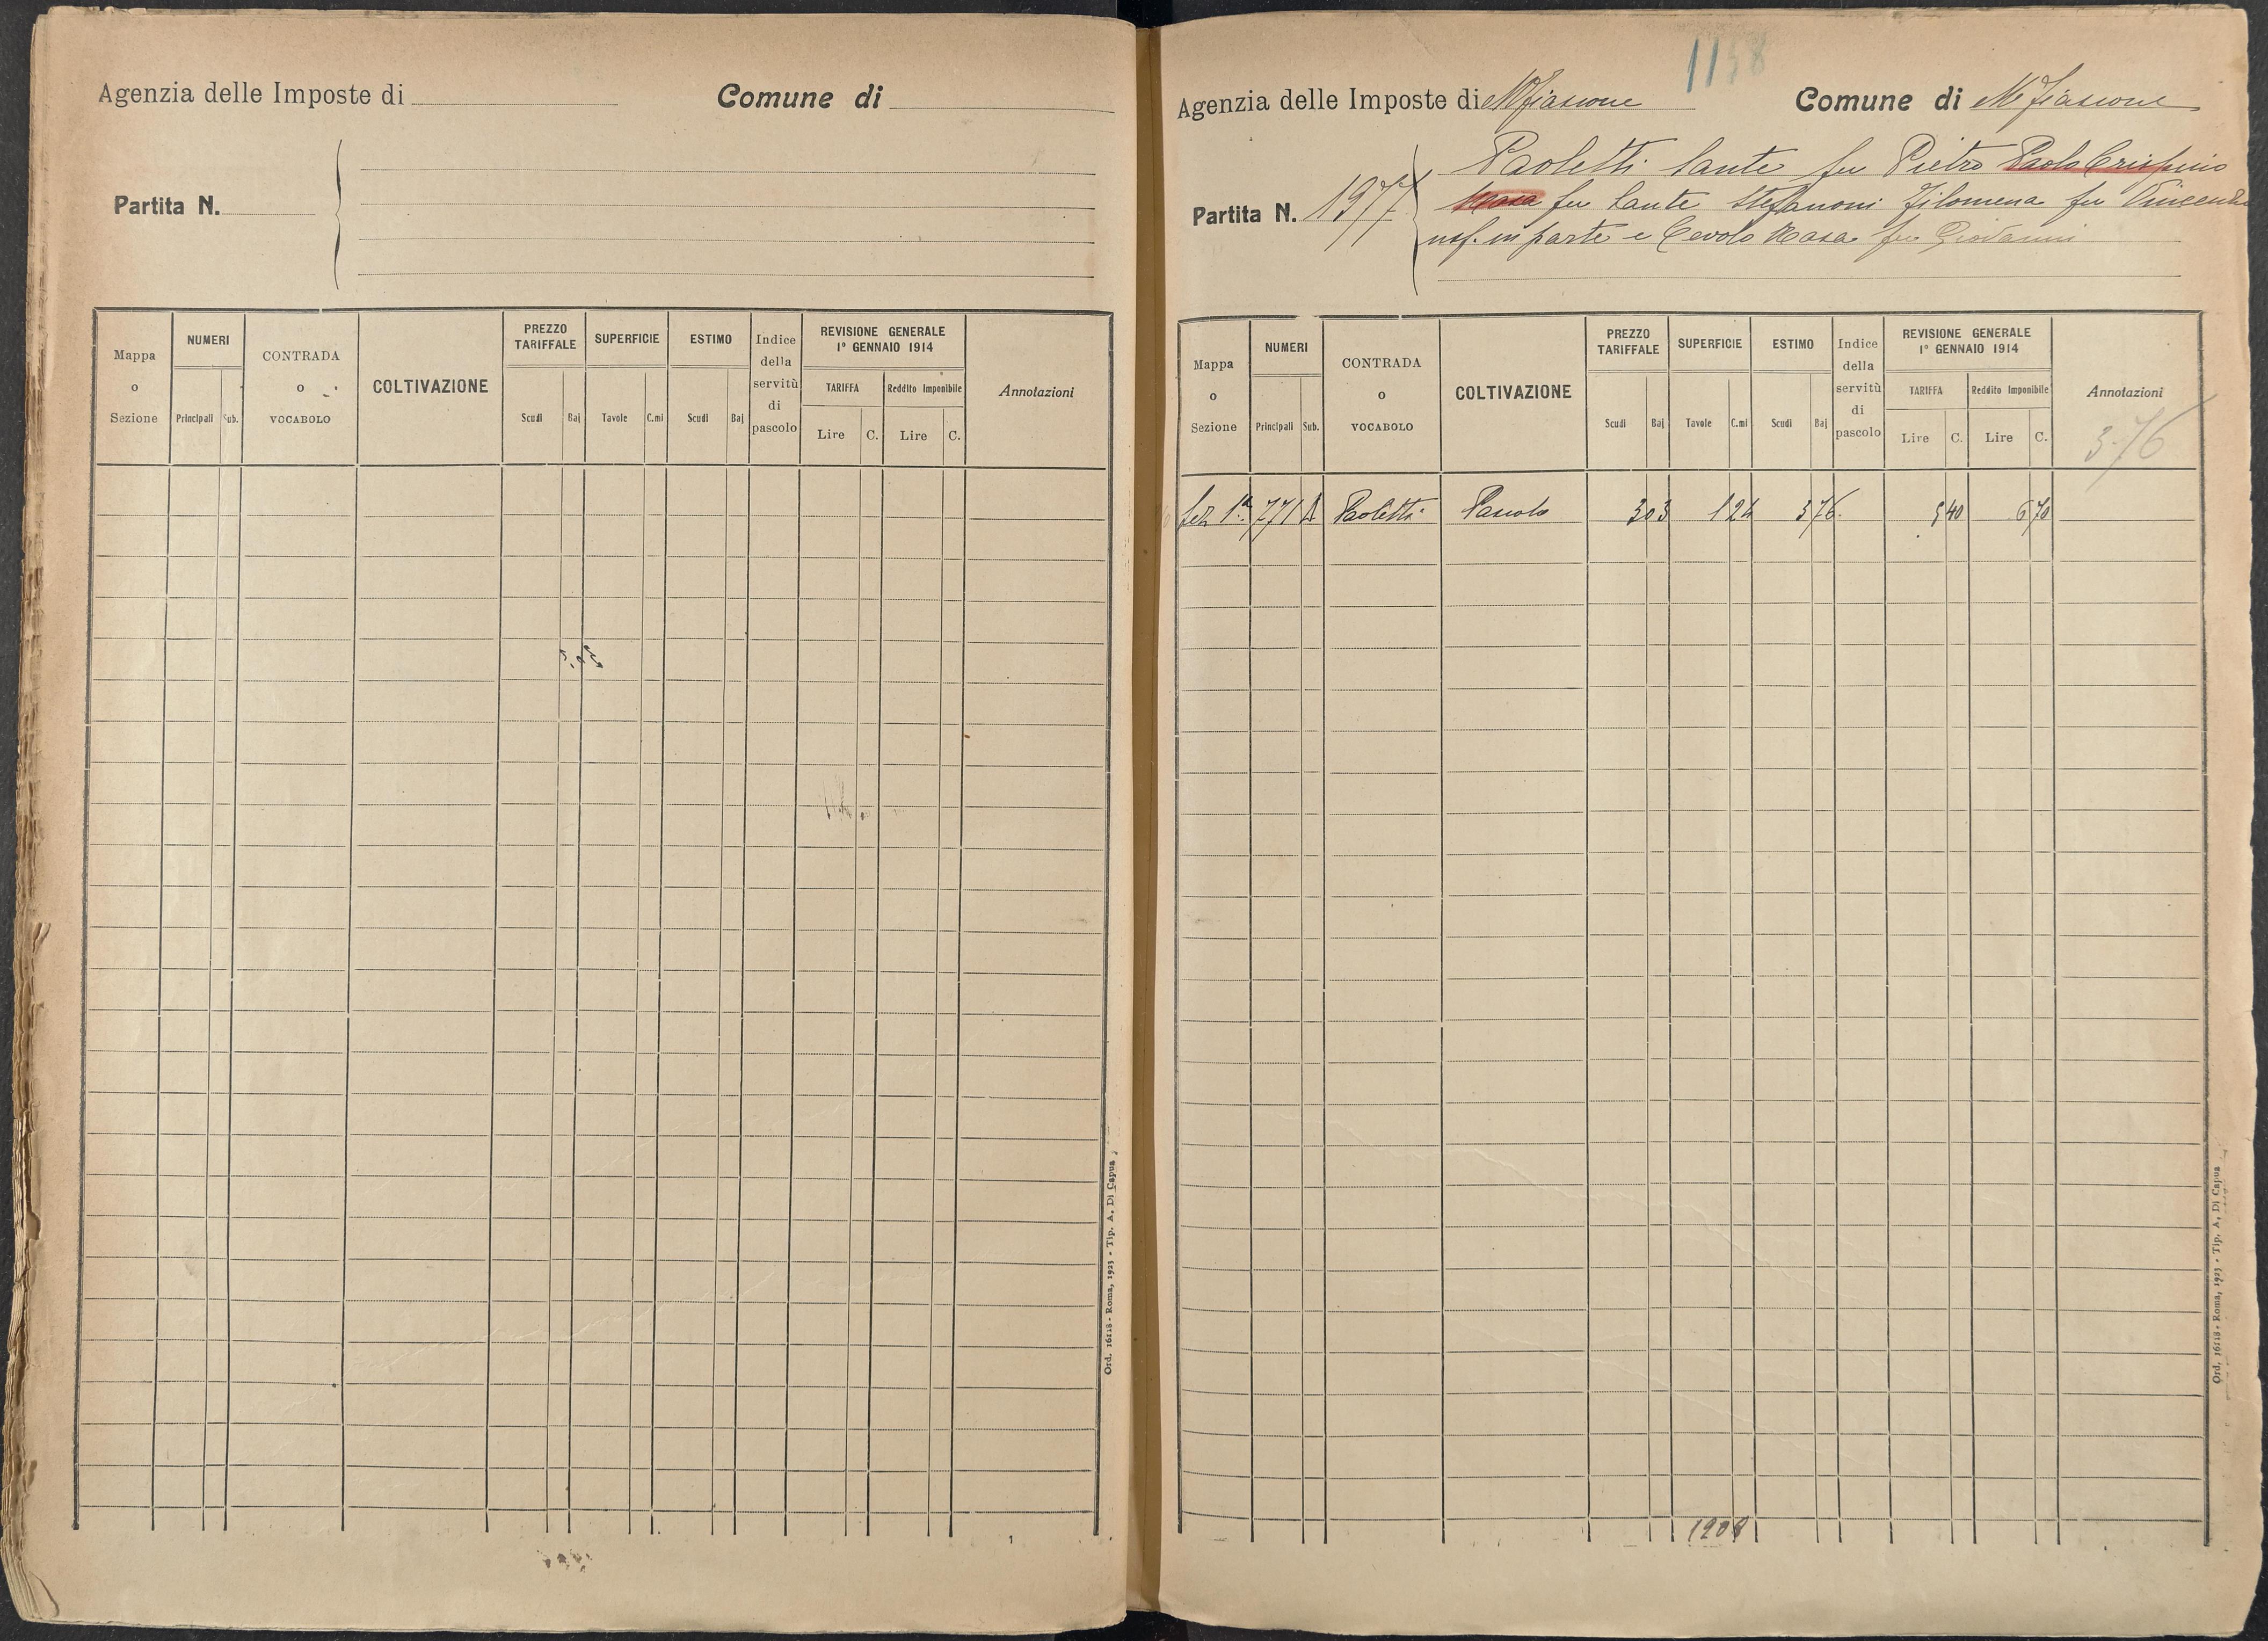 Agenzia delle Imposte di
Comune di
Partita N.
Mappa o Sezione
NUMERI
Principali
Sub.
CONTRADA o VOCABOLO
COLTIVAZIONE
PREZZO TARIFFALE
Scudi
Baj
SUPERFICIE
Tavole
C.mi
ESTIMO
Scudi
Baj
Indice della servitù di pascolo
REVISIONE GENERALE
1° GENNAIO 1914
TARIFFA
Lire
C.
Reddito Imponibile
Lire
C.
Annotazioni
Ord. 16118 - Roma, 1923 - Tip. A. Di Capua
1158
Agenzia delle Imposte di Mfiascone
Comune di Mfiascone
Partita N. 1977
Paoletti Sante fu Pietro Paolo Crispino
Rosa fu Sante Stefanoni Filomena fu Vincenzo
usf. in parte e Cevolo Rosa fu Giovanni
Mappa o Sezione
NUMERI
Principali
Sub.
CONTRADA o VOCABOLO
COLTIVAZIONE
PREZZO TARIFFALE
Scudi
Baj
SUPERFICIE
Tavole
C.mi
ESTIMO
Scudi
Baj
Indice della servitù di pascolo
REVISIONE GENERALE
1° GENNAIO 1914
TARIFFA
Lire
C.
Reddito Imponibile
Lire
C.
Annotazioni
3.76
Sez 1ª 771 Paoletti Pascolo 303 124 376 5 40 6 70
Ord. 16118 - Roma, 1923 - Tip. A. Di Capua